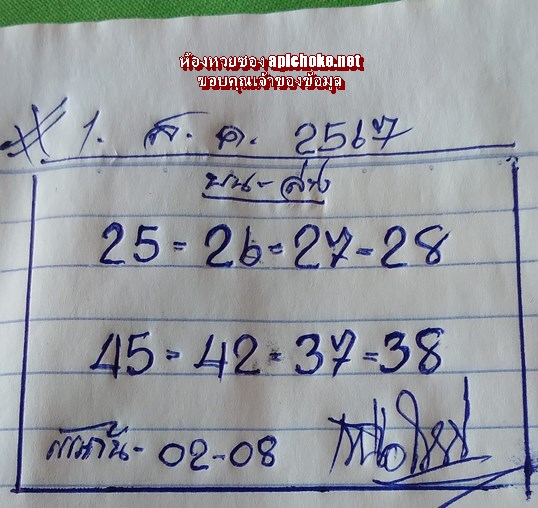 ห้องหวยซอง apichoke.net
ขอบคุณเจ้าของข้อมูล
1. ส. ค. 2567
บน-ล่าง
25-26-27-28
45-42-37-38
02-08